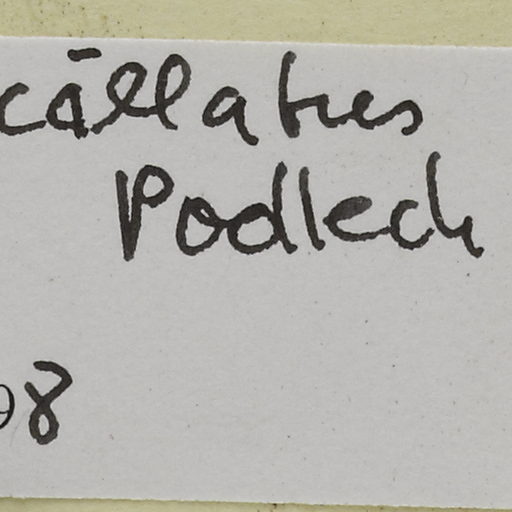 cāllatus
Podlech
98